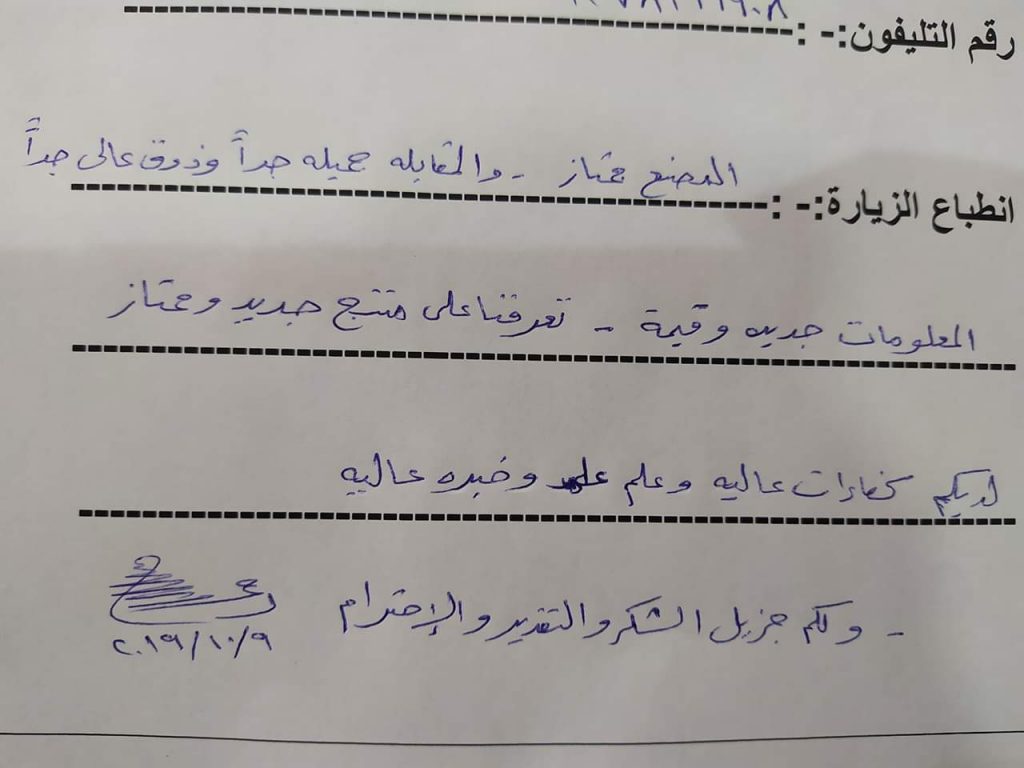 رقم التليفون:- :
انطباع الزيارة:- : المصنع ممتاز - والمقابله جميله جداً وذوق عالى جداً
المعلومات جديده وقيمة - تعرفنا على منتج جديد وممتاز
لديكم كفاءات عاليه وعلم وخبره عاليه
- ولكم جزيل الشكر والتقدير والإحترام
٢٠١٩/١٠/٩